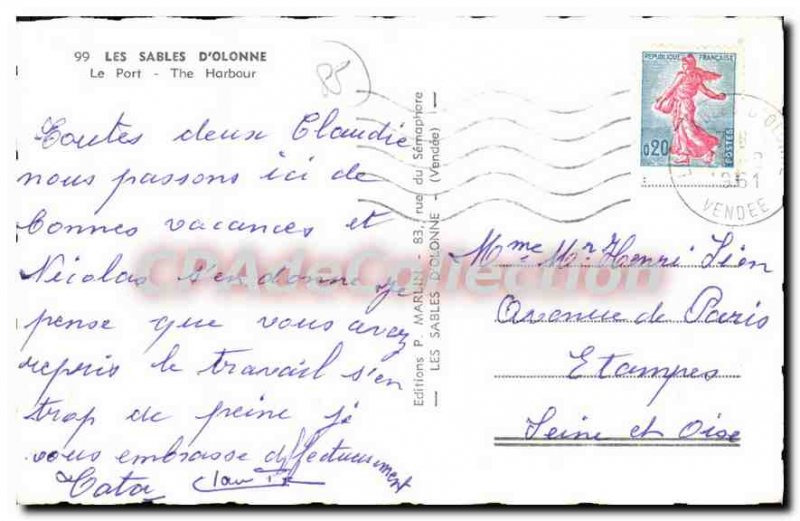 99 LES SABLES D'OLONNE
Le Port - The Harbour
Toutes deux Claudie
nous passons ici de
bonnes vacances et
Nicolas s'en donne je
pense que vous avez
repris le travail s'en
trop de peine je
vous embrasse affectueusement
Tata
Editions P. MARLIN - 83, rue du Sémaphore
— LES SABLES D'OLONNE - (Vendée) —
REPUBLIQUE FRANÇAISE
0,20
POSTES
1961
VENDEE
Mme Mr Henri
Avenue de Paris
Etampes
Seine et Oise
CPAdeCollection